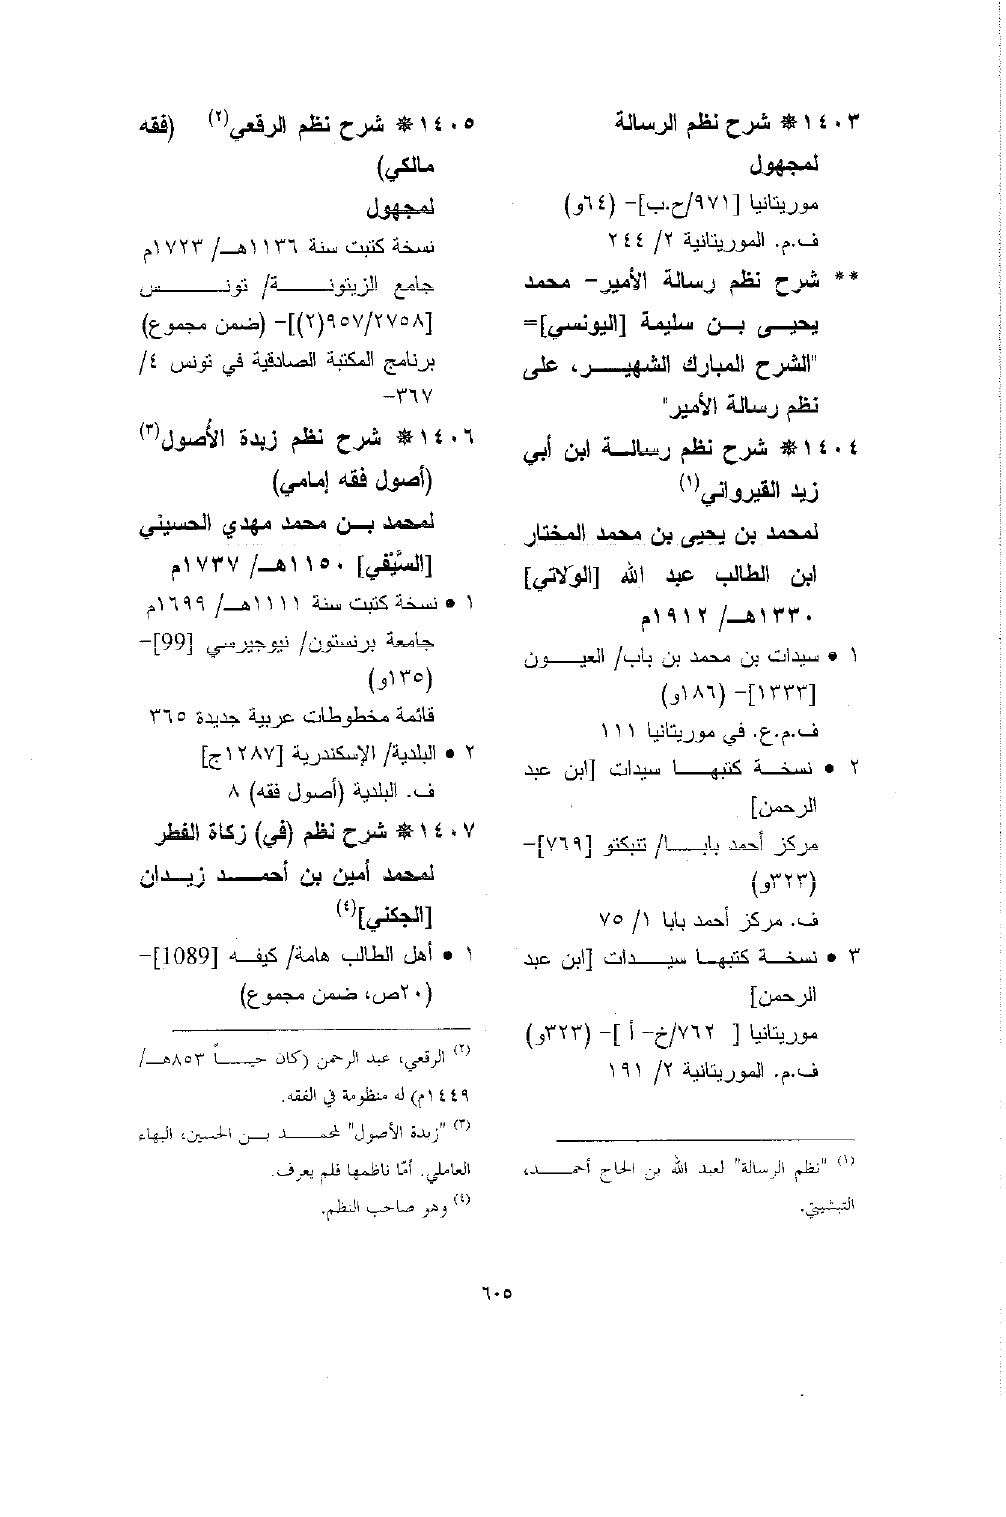 ١٤٠٣* شرح نظم الرسالة
لمجهول
موريتانيا [٩٧١/ح.ب]- (٦٤و)
ف.م. الموريتانية ٢/ ٢٤٤
** شرح نظم رسالة الأمير- محمد
يحيى بن سليمة [اليونسي]=
"الشرح المبارك الشهير، على
نظم رسالة الأمير"
١٤٠٤* شرح نظم رسالة ابن أبي
زيد القيرواني(١)
لمحمد بن يحيى بن محمد المختار
ابن الطالب عبد الله [الولاتي]
١٣٣٠هـ/ ١٩١٢م
١ • سيدات بن محمد بن باب/ العيون
[١٣٣٣]- (١٨٦و)
ف.م.ع. في موريتانيا ١١١
٢ • نسخة كتبها سيدات [ابن عبد
الرحمن]
مركز أحمد بابا/ تنبكتو [٧٦٩]-
(٣٢٣و)
ف. مركز أحمد بابا ١/ ٧٥
٣ • نسخة كتبها سيدات [ابن عبد
الرحمن]
موريتانيا [ ٧٦٢/خ- أ ]- (٣٢٣و)
ف.م. الموريتانية ٢/ ١٩١
(١) "نظم الرسالة" لعبد الله بن الحاج أحمد،
التيشيتي.
١٤٠٥* شرح نظم الرقعي(٢) (فقه
مالكي)
لمجهول
نسخة كتبت سنة ١١٣٦هـ/ ١٧٢٣م
جامع الزيتونة/ تونس
[٩٥٧/٢٧٥٨(٢)]- (ضمن مجموع)
برنامج المكتبة الصادقية في تونس ٤/
٣٦٧-
١٤٠٦* شرح نظم زبدة الأُصول(٣)
(أصول فقه إمامي)
لمحمد بن محمد مهدي الحسيني
[السَّيْفي] ١١٥٠هـ/ ١٧٣٧م
١ • نسخة كتبت سنة ١١١١هـ/ ١٦٩٩م
جامعة برنستون/ نيوجيرسي [99]-
(١٣٥و)
قائمة مخطوطات عربية جديدة ٣٦٥
٢ • البلدية/ الإسكندرية [١٢٨٧ج]
ف. البلدية (أصول فقه) ٨
١٤٠٧* شرح نظم (في) زكاة الفطر
لمحمد أمين بن أحمد زيدان
[الجكني](٤)
١ • أهل الطالب هامة/ كيفه [1089]-
(٢٠ص، ضمن مجموع)
(٢) الرقعي، عبد الرحمن (كان حياً ٨٥٣هـ/
١٤٤٩م) له منظومة في الفقه.
(٣) "زبدة الأصول" لمحمد بن الحسين، البهاء
العاملي. أمّا ناظمها فلم يعرف.
(٤) وهو صاحب النظم.
٦٠٥